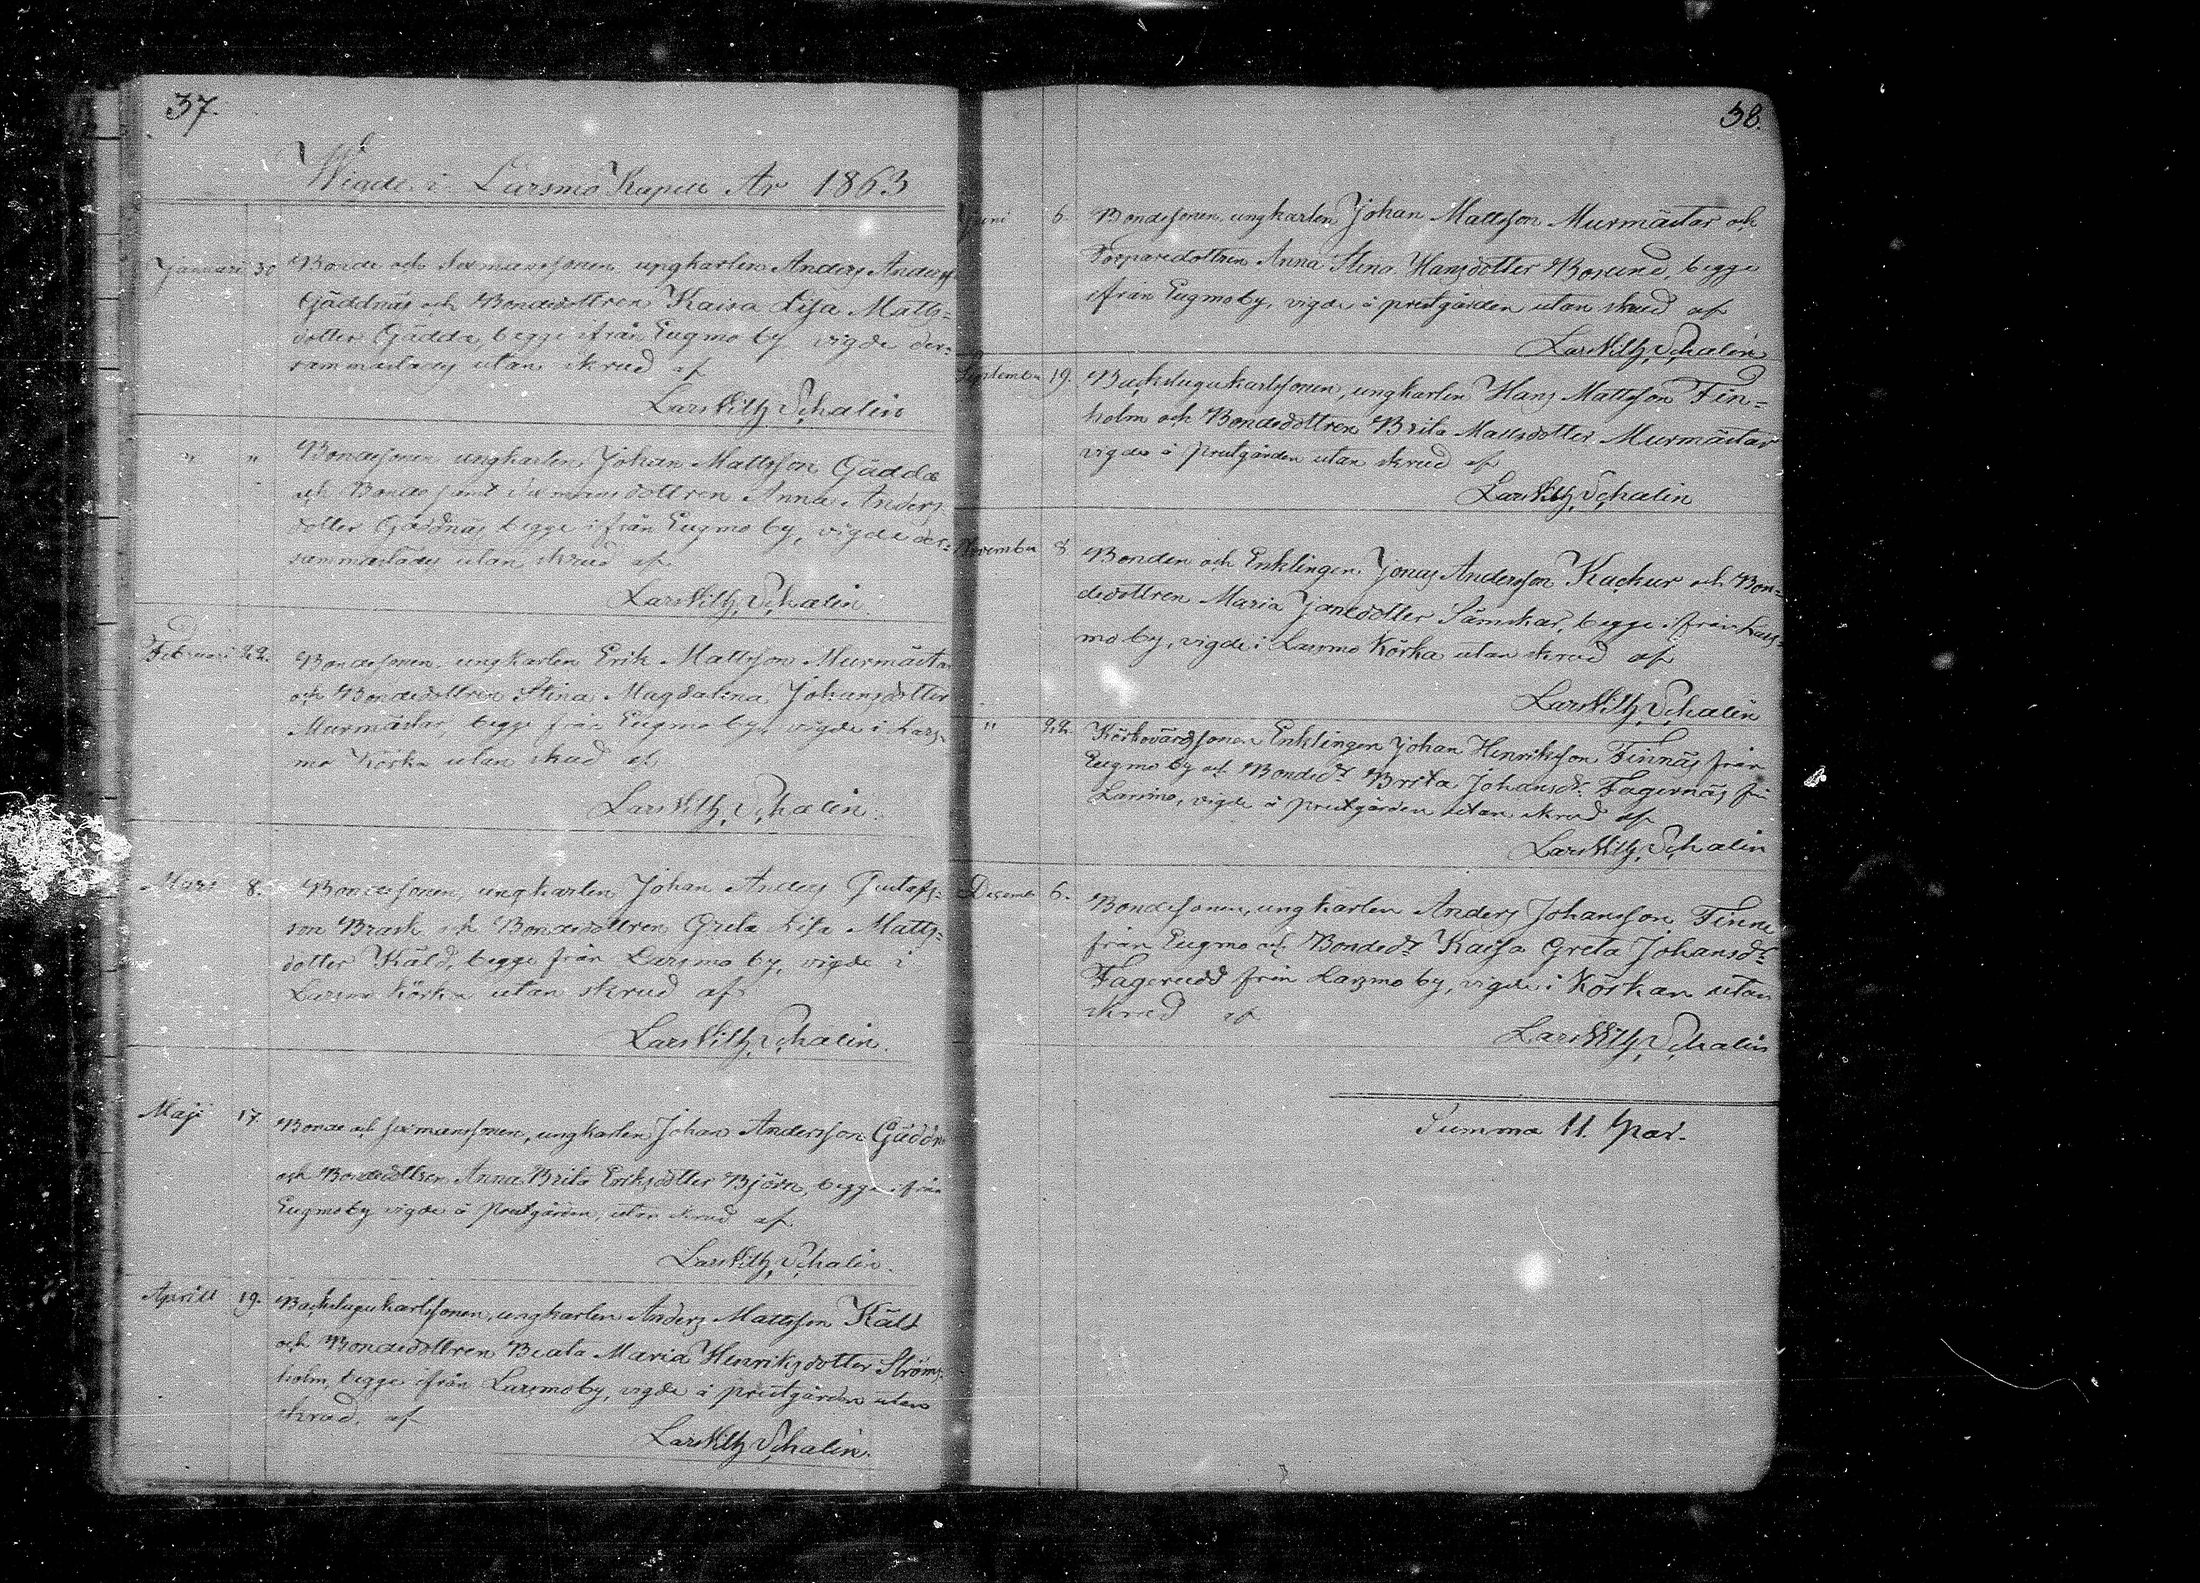 37.
Wigde i Larsmo Kapell År 1863
Januari 30 Bonde och Sexmanssonen, ungkarlen Anders Anderss.
Gäddnäs och Bondedottren Kaisa Lisa Matts-
dotter Gädda, begge ifrån Eugmo by vigde der-
sammastädes utan skrud af
Lars Wilh. Schalin
" " Bondesonen ungkarlen Johan Mattsson Gädda
och Bonde samt Sexmansdottren Anna Anders
dotter Gäddnäs begge ifrån Eugmo by, vigde der-
sammastädes utan skrud af
Lars Wilh. Schalin.
Februari 22. Bondesonen, ungkarlen Erik Mattsson Murmästar
och Bondedottren Stina Magdalena Johansdotter
Murmästar, begge från Eugmo by, vigde i Lars-
mo Körka utan skrud af
Lars Wilh. Schalin.
Mars 8. Bondesonen, ungkarlen Johan Anders Gustafs-
son Brask och Bondedottren Greta Lisa Matts-
dotter Käld, begge från Larsmo by, vigde i
Larsmo Körka utan skrud af
Lars Wilh. Schalin.
Maji 17. Bonde och sexmanssonen, ungkarlen Johan Andersson Gäddn
och Bondedottren Anna Brita Eriksdotter Björn, begge ifrån
Eugmo by vigde å Prestgården, utan skrud af
Lars Wilh. Schalin.
Aprill 19. Backstugukarlssonen, ungkarlen Anders Mattsson Käld
och Bondedottren Beata Maria Henriksdotter Ströms-
holm, begge ifrån Larsmo by, vigde å prestgården utan
skrud. af
Lars Wilh. Schalin.
38.
Juni 6. Bondesonen, ungkarlen Johan Mattsson Murmästar och
Torparedottren Anna Stina Hansdotter Bosund, begge
ifrån Eugmo by, vigde å prestgården utan skrud af
Lars Wilh. Schalin
September 19. Backstugukarlssonen, ungkarlen Hans Mattsson Fin-
holm och Bondedottren Brita Mattsdotter Murmästar
vigde å Prestgården utan skrud af
Lars Wilh. Schalin
November 8. Bonden och Enklingen Jonas Andersson Kackur och Bon-
dedottren Maria Jansdotter Sämskar, begge ifrån Lars-
mo by, vigde i Larsmo Körka utan skrud af
Lars Wilh. Schalin
" 22. Körkovärdssonen Enklingen Johan Henriksson Finnäs från
Eugmo by och Bondedr Brita Johansdr. Fagernäs fr
Larsmo, vigde å prestgården utan skrud af
Lars Wilh. Schalin
December 6. Bondesonen, ungkarlen Anders Johansson Finne
från Eugmo och Bondedr Kaisa Greta Johansdr.
Fagerudd från Larsmo by, vigde i Körkan utan
skrud af
Lars Wilh. Schalin
Summa 11. Par.